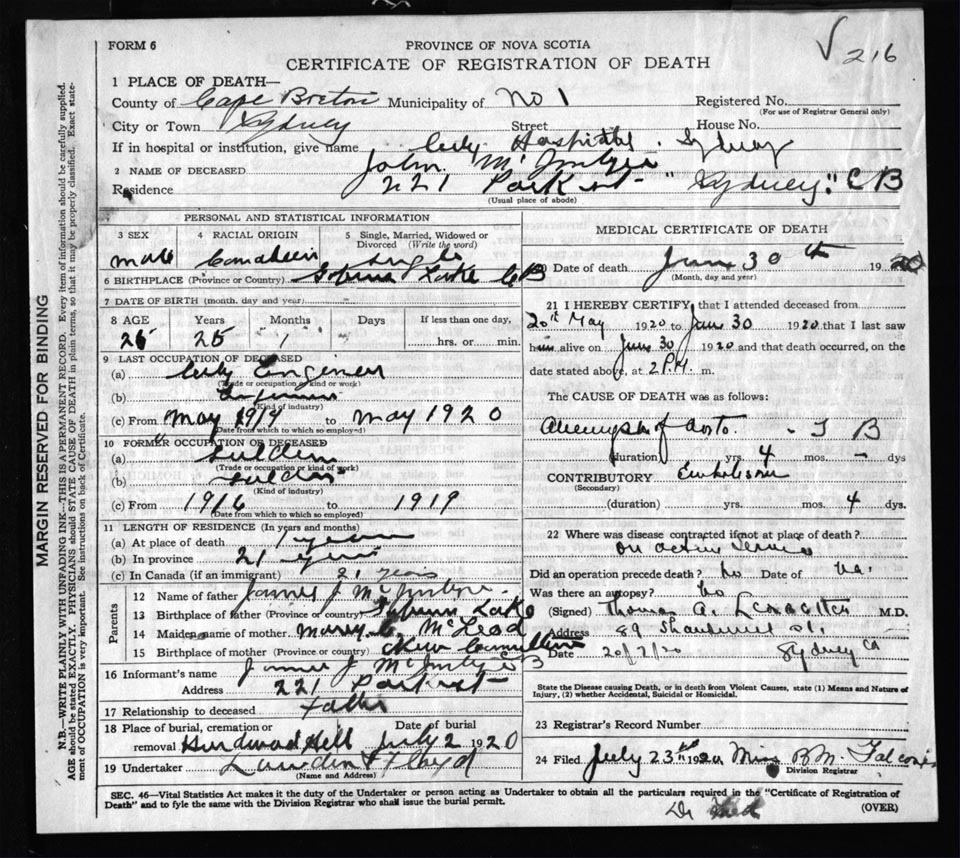 FORM 6
PROVINCE OF NOVA SCOTIA
CERTIFICATE OF REGISTRATION OF DEATH
√ 216
1 PLACE OF DEATH—
County of Cape Breton Municipality of No 1 Registered No.
(For use of Registrar General only)
City or Town Sydney Street House No.
If in hospital or institution, give name City Hospital. Sydney
2 NAME OF DECEASED John McIntyre
Residence 221 Park st - " Sydney." C B
(Usual place of abode)
PERSONAL AND STATISTICAL INFORMATION
3 SEX 4 RACIAL ORIGIN 5 Single, Married, Widowed or Divorced (Write the word)
male Canadian single
6 BIRTHPLACE (Province or Country) Lake CB
7 DATE OF BIRTH (month, day and year)
8 AGE Years Months Days If less than one day,
25 25 1 hrs. or min.
9 LAST OCCUPATION OF DECEASED
(a) City Engineer
(Trade or occupation or kind or work)
(b)
(Kind of industry)
(c) From May 1919 to May 1920
(Date from which to which so employed)
10 FORMER OCCUPATION OF DECEASED
(a) Soldier
(Trade or occupation or kind of work)
(b) Soldier
(Kind of industry)
(c) From 1916 to 1919
(Date from which to which so employed)
11 LENGTH OF RESIDENCE (In years and months)
(a) At place of death 1 year
(b) In province 21 years
(c) In Canada (if an immigrant) 21 years
Parents
12 Name of father James J McIntyre
13 Birthplace of father (Province or country) Lake
14 Maiden name of mother Mary McLeod
15 Birthplace of mother (Province or country) New
16 Informant's name James J McIntyre
Address 221 Park st -
17 Relationship to deceased Father
18 Place of burial, cremation or removal Hardwood Hill Date of burial July 2 1920
19 Undertaker & Lloyd
(Name and Address)
MEDICAL CERTIFICATE OF DEATH
20 Date of death June 30th 1920
(Month, day and year)
21 I HEREBY CERTIFY, that I attended deceased from
20th May 1920 to June 30 1920 that I last saw
him alive on June 30 1920 and that death occurred, on the
date stated above, at 2 P.M. m.
The CAUSE OF DEATH was as follows:
T B
(duration) yrs. 4 mos. — dys
CONTRIBUTORY Embolism
(Secondary)
(duration) yrs. mos. 4 dys.
22 Where was disease contracted if not at place of death?
on active service
Did an operation precede death? No Date of
Was there an autopsy? No
(Signed) Thomas A. M.D.
Address 89 st.
Date 20/7/20 Sydney
State the Disease causing Death, or in death from Violent Causes, state (1) Means and Nature of Injury, (2) whether Accidental, Suicidal or Homicidal.
23 Registrar's Record Number
24 Filed July 23rd 1920 Miss
Division Registrar
SEC. 46—Vital Statistics Act makes it the duty of the Undertaker or person acting as Undertaker to obtain all the particulars required in the "Certificate of Registration of
Death" and to fyle the same with the Division Registrar who shall issue the burial permit. (OVER)
MARGIN RESERVED FOR BINDING
N.B.—WRITE PLAINLY WITH UNFADING INK—THIS IS A PERMANENT RECORD. Every item of information should be carefully supplied.
AGE should be stated EXACTLY. PHYSICIANS should STATE CAUSE OF DEATH in plain terms, so that it may be properly classified. Exact statement of OCCUPATION is very important. See instructions on back of Certificate.